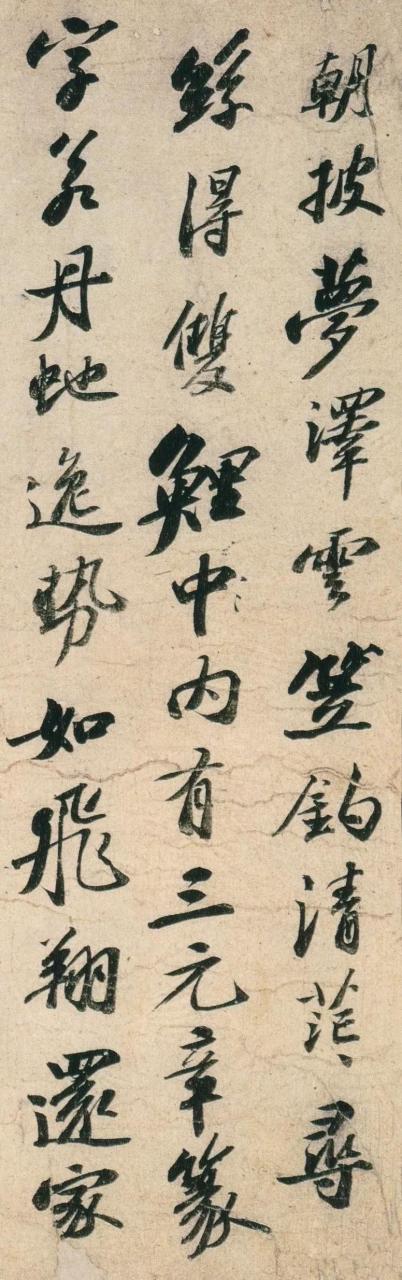 朝披夢澤雲笠釣清茫〻尋
絲得雙鯉中内有三元章篆
字若丹虵逸勢如飛翔還家